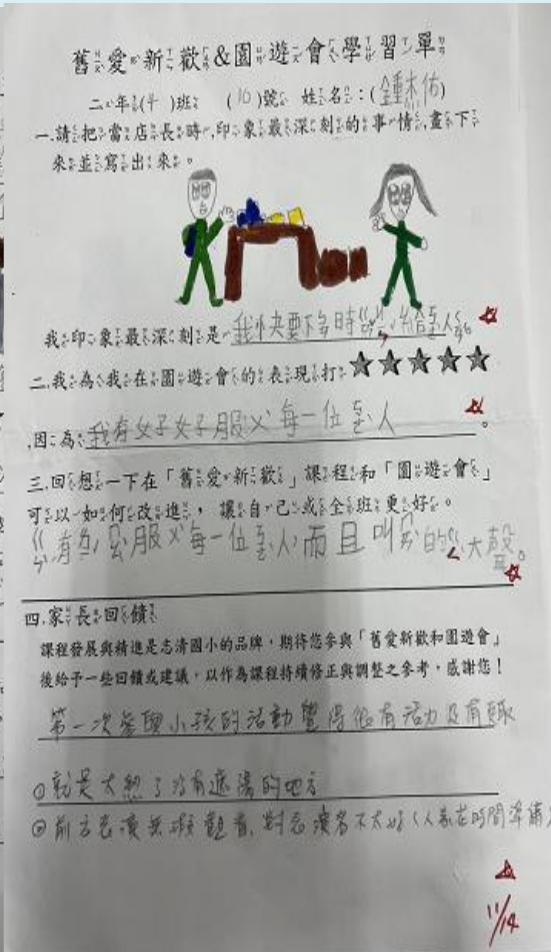 舊愛新歡&園遊會學習單
二年(4)班 (10)號 姓名:(鍾杰佑)
一.請把當店長時,印象最深刻的事情,畫下
來並寫出來。
我印象最深刻是 我快要下
二.我為我在園遊會的表現打 ★★★★★
因為 我有好好服ㄨˋ每一位 人。
三.回想一下在「舊愛新歡」課程和「園遊會」
可以如何改進,讓自己或全班更好。
服ㄨˋ每一位 人而且叫 的 大聲。
四.家長回饋
課程發展與精進是志清國小的品牌,期待您參與「舊愛新歡和園遊會」
後給予一些回饋或建議,以作為課程持續修正與調整之參考,感謝您!
第一次參與小孩的活動覺得很有活力及有趣
①就是太熱了沒有遮陽的地方
②前方表演無人觀看,對表演者不太好(人家花時間準備
11/14